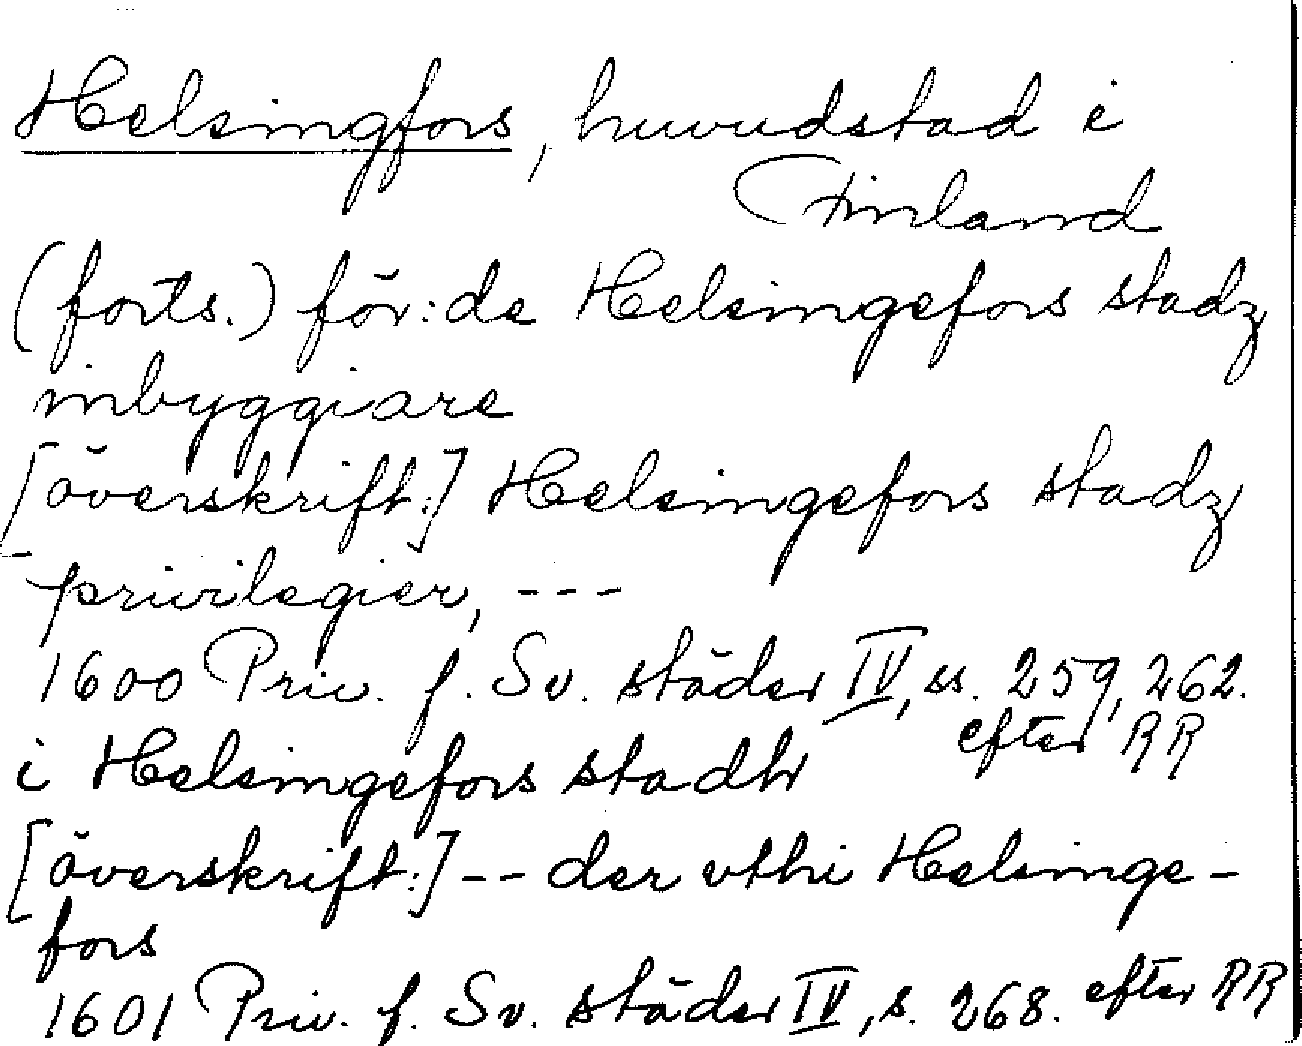 Helsingfors, huvudstad i
Finland
(forts.) för: de Helsingefors stadz
inbyggiare
[överskrift:] Helsingefors stadz
privilegier, ---
1600 Priv. f. Sv. städer IV, ss. 259, 262.
efter RR
i Helsingefors stadh
[överskrift:] -- der vthi Helsinge-
fors
1601 Priv. f. Sv. städer IV, s. 268. efter RR